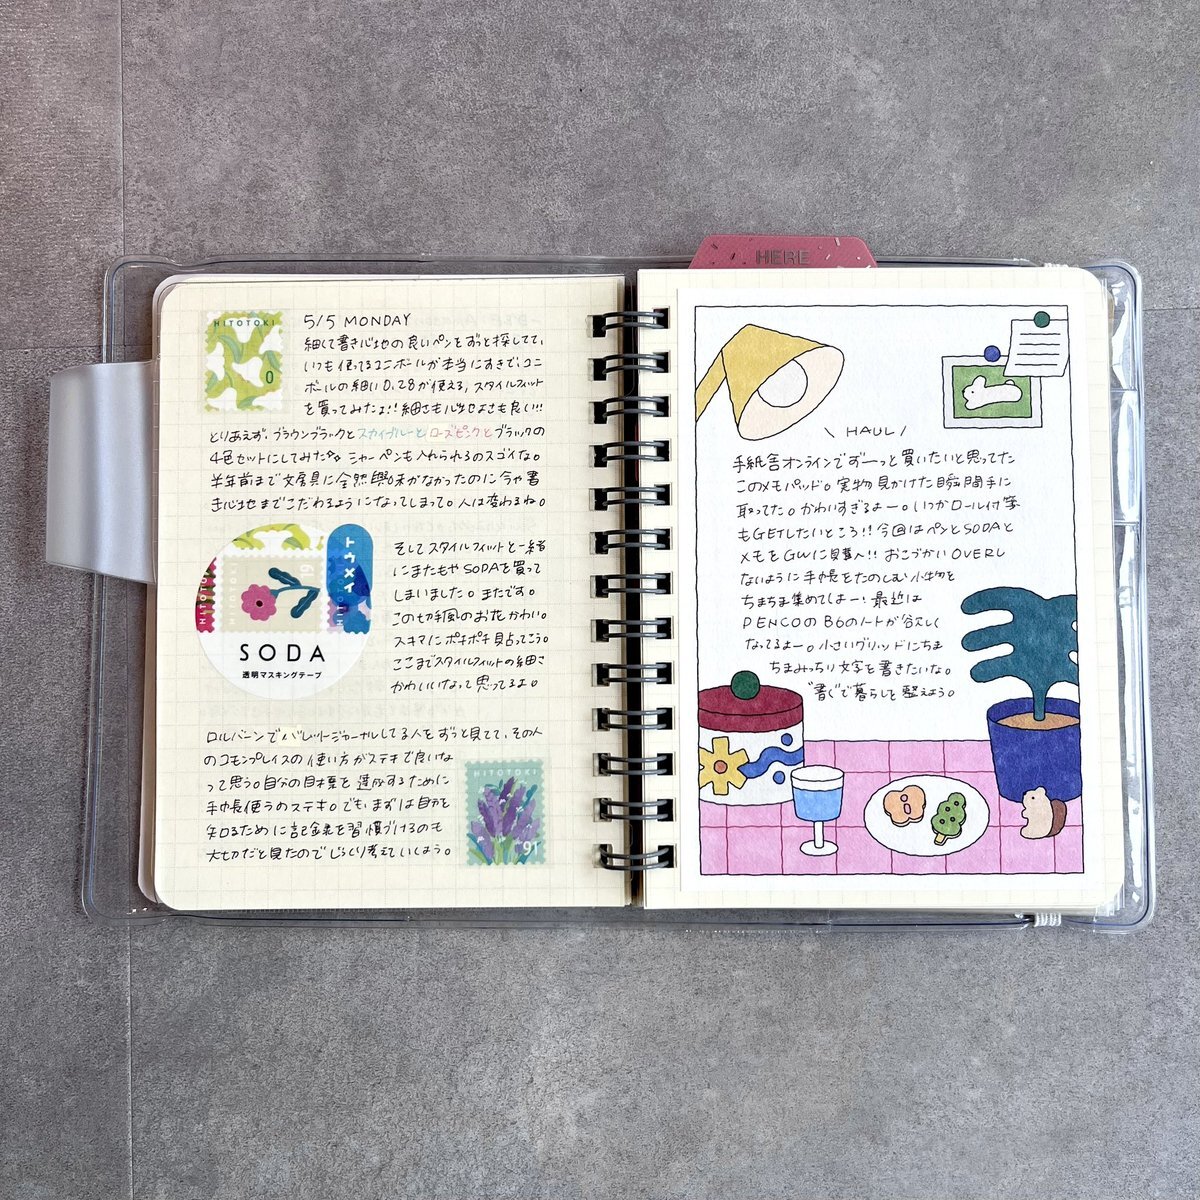 HERE
HITOTOKI
0
5/5 MONDAY
細くて書き心地の良いペンをずっと探してて、
いつも使ってるユニボールが本当にすきで、ユニ
ボールの細い0.28が使える、スタイルフィット
を買ってみたよ!! 細さも心地よさも良い!!!
とりあえず、ブラウンブラックとスカイブルーとローズピンクとブラックの
4色セットにしてみた シャーペンも入れられるのスゴイな。
半年前まで文房具に全然興味がなかったのに今や書
き心地までこだわるようになってしまって。人は変わるね。
トウメイ
HITOTOKI
SODA
透明マスキングテープ
そしてスタイルフィットと一緒
にまたもやSODAを買って
しまいました。またです。
この切手風のお花かわいい。
スキマにポチポチ貼ってこう。
ここまでスタイルフィットの細さ
かわいいなって思ってるよ。
ロルバーンでバレットジャーナルしてる人をずっと見てて、その人
のコモンプレイスの使い方がステキで良いな
って思う。自分の目標を達成するために
手帳使うのステキ。でもまずは自分を
知るために記録を習慣づけるのも
大切だと見たのでじっくり考えていくよう。
HITOTOKI
91
\ HAUL /
手紙舎オンラインでずーっと買いたいと思ってた
このメモパッド。実物見かけた瞬間手に
取ってた。かわいすぎるよー。いつかロール付箋
もGETしたいところ!! 今回はペンとSODAと
メモをGWに購入!! おこづかいOVERし
ないように手帳をたのしむ小物を
ちまちま集めてしまー! 最近は
PENCOのB6のノートが欲しく
なってるよー。小さいグリッドにちま
ちまみっちり文字を書きたいな。
"書く"で暮らしを整えよう。